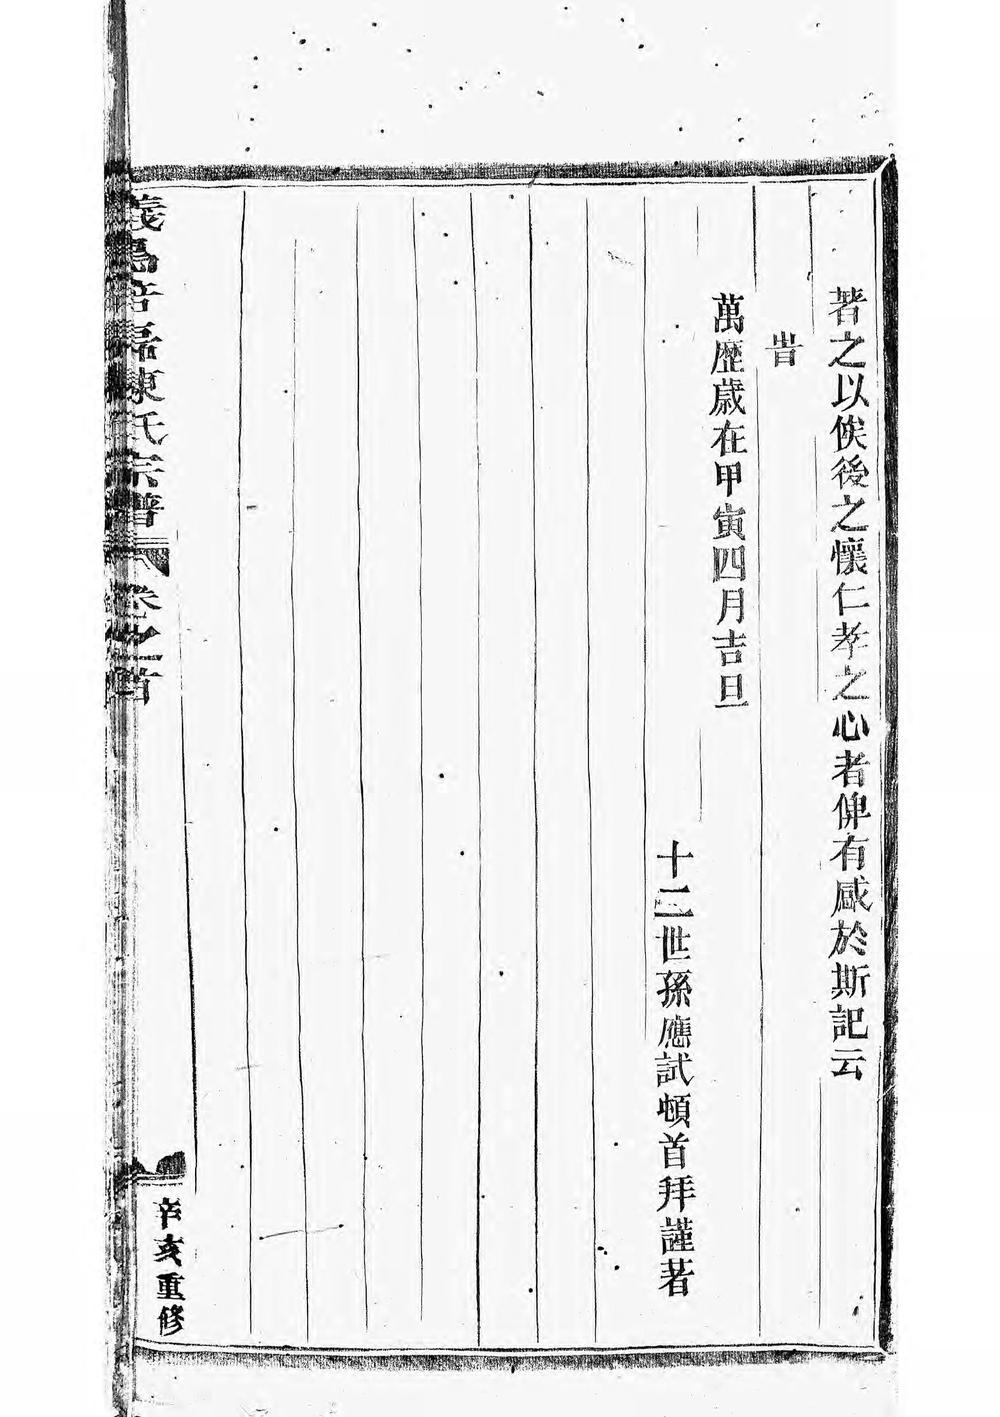 著之以俟後之懷仁孝之心者俾有感於斯記云
旹
萬歷歲在甲寅四月吉旦
十二世孫應試頓首拜謹著
義烏倍磊陳氏宗譜 卷之首
辛亥重修